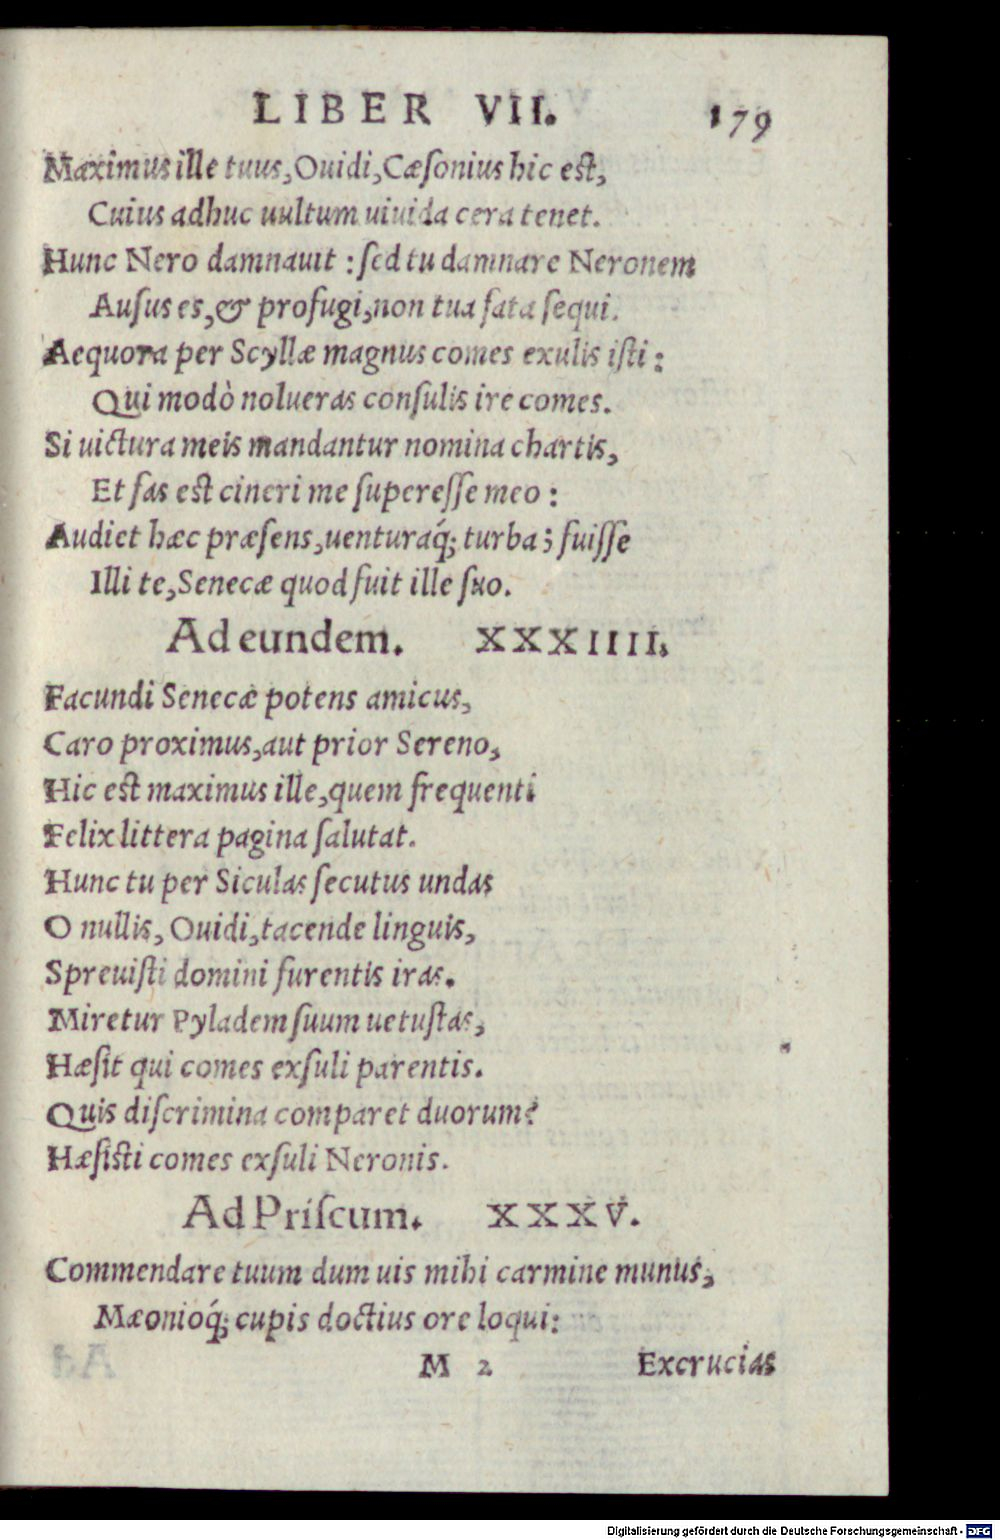 LIBER VII. 179
Maximus ille tuus, Ouidi, Cæſonius hic eſt,
Cuius adhuc uultum uiuida cera tenet.
Hunc Nero damnauit : ſed tu damnare Neronem
Auſus es, & profugi, non tua fata ſequi.
Aequora per Scyllæ magnus comes exulis iſti :
Qui modò nolueras conſulis ire comes.
Si uictura meis mandantur nomina chartis,
Et fas eſt cineri me ſupereſſe meo :
Audiet hæc præſens, uenturaq́; turba; fuiſſe
Illi te, Senecæ quod fuit ille ſuo.
Ad eundem. XXXIIII.
Facundi Senecæ potens amicus,
Caro proximus, aut prior Sereno,
Hic eſt maximus ille, quem frequenti
Felix littera pagina ſalutat.
Hunc tu per Siculas ſecutus undas
O nullis, Ouidi, tacende linguis,
Spreuiſti domini furentis iras.
Miretur Pyladem ſuum uetuſtas,
Hæſit qui comes exſuli parentis.
Quis diſcrimina comparet duorum?
Hæſiſti comes exſuli Neronis.
Ad Priſcum. XXXV.
Commendare tuum dum uis mihi carmine munus,
Mæonioq́; cupis doctius ore loqui:
M 2 Excrucias
Digitalisierung gefördert durch die Deutsche Forschungsgemeinschaft - DFG